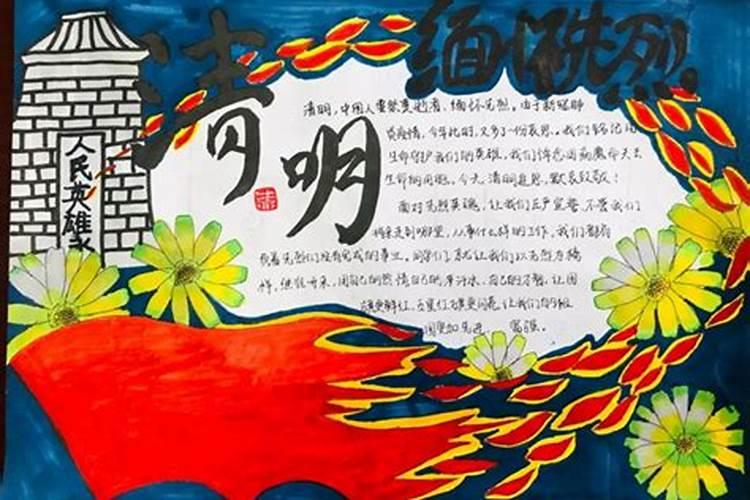 清明
缅怀先烈
人民英雄永
清明,中国人重祭奠逝者、缅怀先烈。由于新冠肺
炎疫情,今年此时,又多了一份哀思。我们铭记用
生命守护我们的英雄,我们悼念因病魔而失去
生命的同胞。今天,清明追思,默哀致敬!
面对先烈英魂,让我们庄严宣誓,不管我们
将来走到哪里,从事什么样的工作,我们都有
先烈们没有完成的事业,同学们,就让我们以先烈为榜
样,继往开来,用自己的热情自己的汗水,自己的才智,让国
旗更鲜红,让我们的
国更加先进、富强。